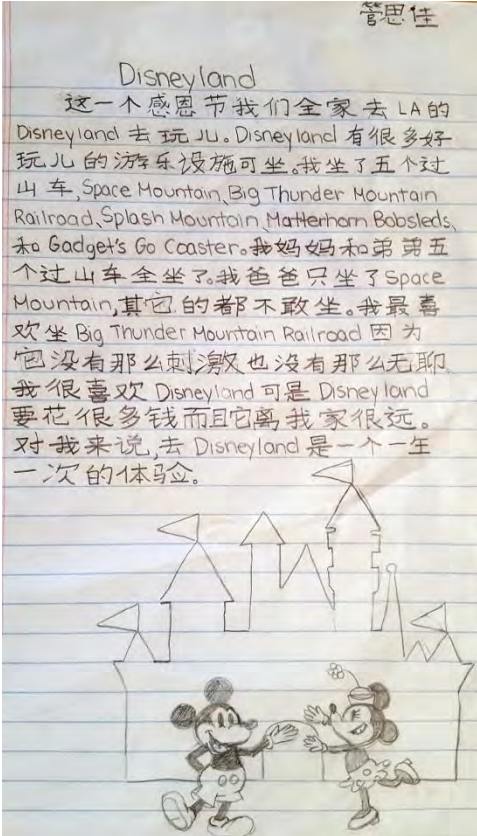 管思佳
Disneyland
这一个感恩节我们全家去 LA 的
Disneyland 去玩儿。Disneyland 有很多好
玩儿的游乐设施可坐。我坐了五个过
山车,Space Mountain、Big Thunder Mountain
Railroad、Splash Mountain、Matterhorn Bobsleds、
和 Gadget's Go Coaster。我妈妈和弟弟五
个过山车全坐了。我爸爸只坐了 Space
Mountain,其它的都不敢坐。我最喜
欢坐 Big Thunder Mountain Railroad 因为
它没有那么刺激也没有那么无聊.
我很喜欢 Disneyland 可是 Disneyland
要花很多钱而且它离我家很远。
对我来说,去 Disneyland 是一个一年
一次的体验。